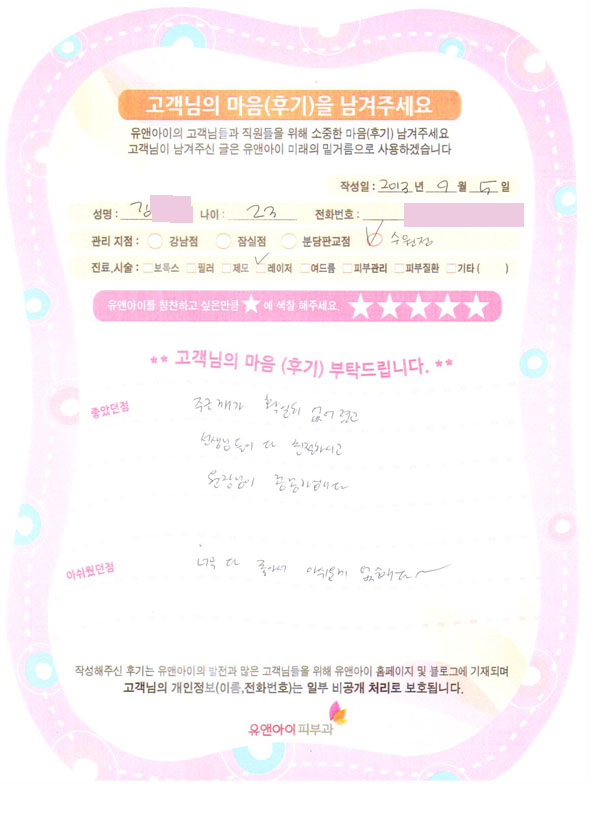 고객님의 마음(후기)을 남겨주세요
유앤아이의 고객님들과 직원들을 위해 소중한 마음(후기) 남겨주세요
고객님이 남겨주신 글은 유앤아이 미래의 밑거름으로 사용하겠습니다
작성일 : 2013 년 9 월 5 일
성명 : 김 나이 : 23 전화번호 :
관리 지점 : 강남점 잠실점 분당판교점 수원점
진료,시술 : 보톡스 필러 제모 레이저 여드름 피부관리 피부질환 기타 ( )
유앤아이를 칭찬하고 싶은만큼 ★ 에 색칠 해주세요. ★★★★★
** 고객님의 마음 (후기) 부탁드립니다. **
좋았던점 주근깨가 확실히 없어졌고
선생님들이 다 친절하시고
원장님이
아쉬웠던점 너무 다 좋아서 아쉬운게 없습니다~
작성해주신 후기는 유앤아이의 발전과 많은 고객님들을 위해 유앤아이 홈페이지 및 블로그에 기재되며
고객님의 개인정보(이름,전화번호)는 일부 비공개 처리로 보호됩니다.
유앤아이피부과